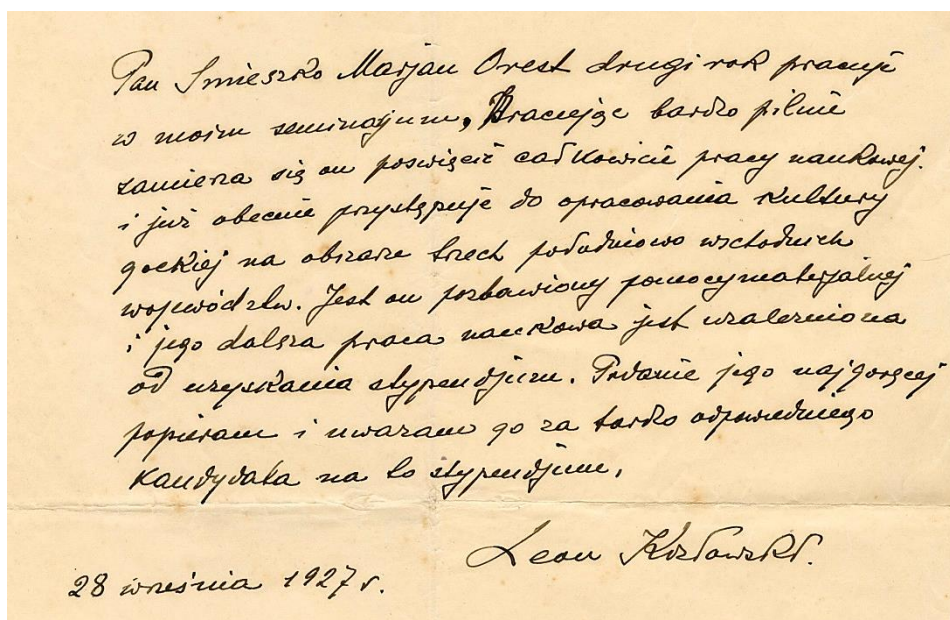 Pan Śmieszko Marjan Orest drugi rok pracuje
w moim seminarjum, Pracując bardzo pilnie
zamierza się on poswięcić całkowicie pracy naukowej.
i już obecnie przystępuje do opracowania kultury
gockiej na obszarze trzech południowo wschodnich
województw. Jest on pozbawiony pomocy materjalnej
i jego dalsza praca naukowa jest uzależniona
od uzyskania stypendjum. Podanie jego najgoręcej
popieram i uwazam go za bardzo odpowiedniego
kandydata na to stypendjum.
Leon Kozłowski.
28 września 1927 r.